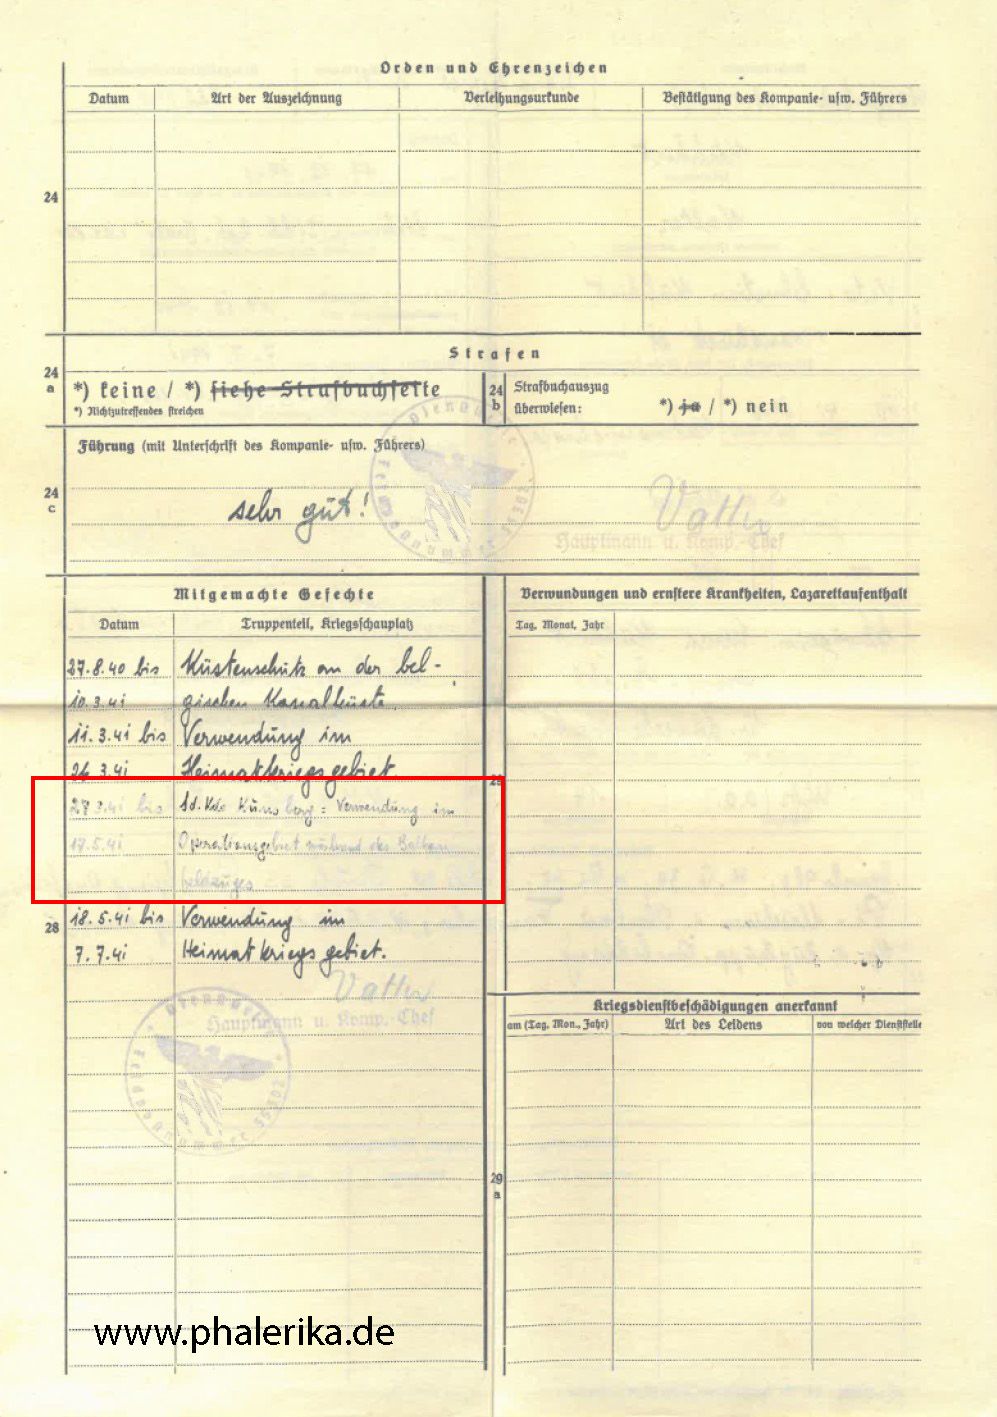 Orden und Ehrenzeichen
Datum Art der Auszeichnung Verleihungsurkunde Bestätigung des Kompanie- usw. Führers
24
Strafen
24 a *) keine / *) siehe Strafbuchseite
*) Nichtzutreffendes streichen
24 b Strafbuchauszug
überwiesen: *) ja / *) nein
Führung (mit Unterschrift des Kompanie- usw. Führers)
24 c
sehr gut!
Hauptmann u. Komp.-Chef
Mitgemachte Gefechte
Datum Truppenteil, Kriegsschauplatz
27.8.40 bis Küstenschutz an der bel-
10.3.41 gischen Kanalküste
11.3.41 bis Verwendung im
26.3.41 Heimatkriegsgebiet
27.3.41 bis Sd. Kdo Künsberg: Verwendung im
17.5.41 Operationsgebiet während des Balkan
feldzuges
28
18.5.41 bis Verwendung im
7.7.41 Heimatkriegsgebiet.
Hauptmann u. Komp.-Chef
Verwundungen und ernstere Krankheiten, Lazarettaufenthalt
Tag, Monat, Jahr
Kriegsdienstbeschädigungen anerkannt
am (Tag, Mon., Jahr) Art des Leidens von welcher Dienststelle
29 a
www.phalerika.de